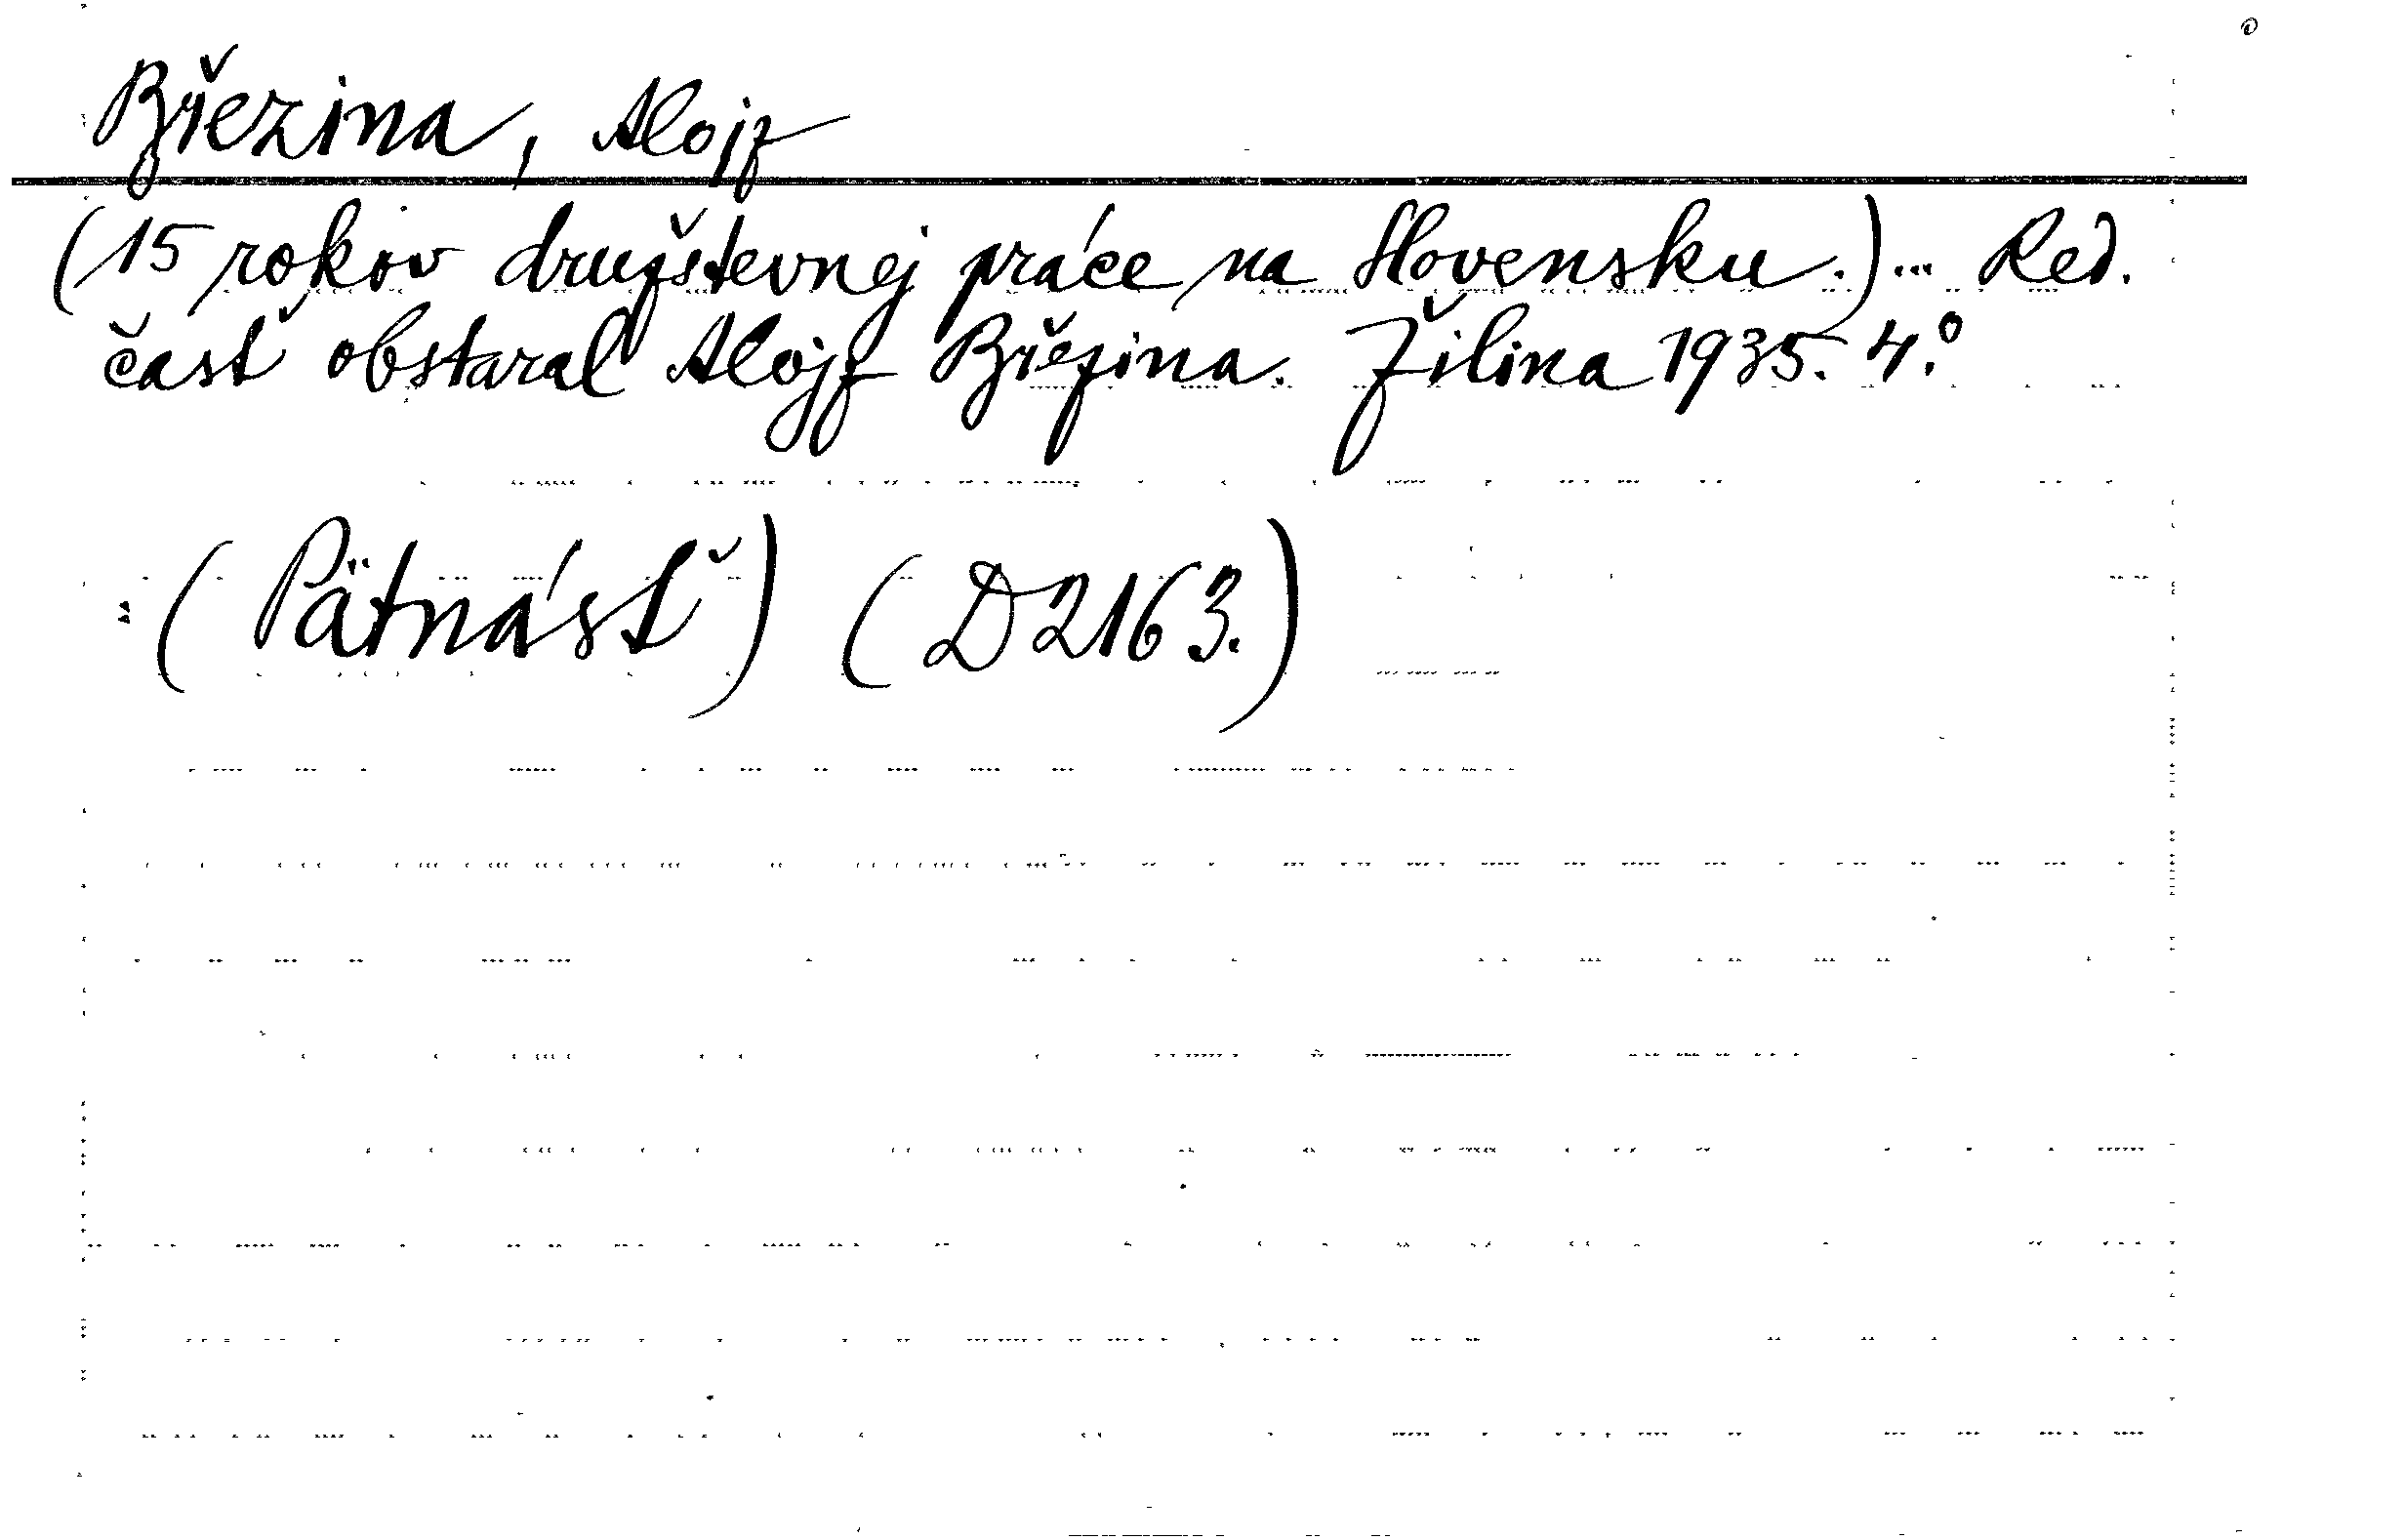 Březina, Alojz
(15 rokov družstevnej práce na Slovensku.)... Red.
časť obstaral Alojz Březina. Žilina 1935. 4.º
(Pätnásť) (D2163.)